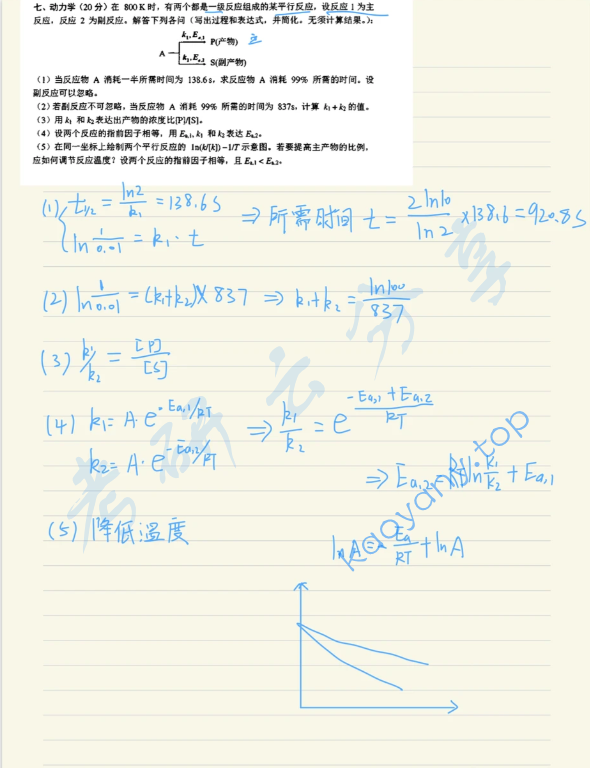 七、动力学(20分)在 800 K 时,有两个都是一级反应组成的某平行反应,设反应 1 为主
反应,反应 2 为副反应。解答下列各问(写出过程和表达式,并简化。无须计算结果。):
k₁, Eₐ,₁
P(产物) 主
A
k₂, Eₐ,₂
S(副产物)
(1)当反应物 A 消耗一半所需时间为 138.6 s,求反应物 A 消耗 99% 所需的时间。设
副反应可以忽略。
(2)若副反应不可忽略,当反应物 A 消耗 99% 所需的时间为 837s,计算 k₁+k₂ 的值。
(3)用 k₁ 和 k₂ 表达出产物的浓度比[P]/[S]。
(4)设两个反应的指前因子相等,用 Eₐ,₁, k₁ 和 k₂ 表达 Eₐ,₂。
(5)在同一坐标上绘制两个平行反应的 ln(k/[k])−1/T 示意图。若要提高主产物的比例,
应如何调节反应温度?设两个反应的指前因子相等,且 Eₐ,₁ < Eₐ,₂。
(1) t1/2 = ln2/k₁ = 138.6 S ⇒ 所需时间 t = 2ln10/ln2 ×138.6 = 920.8 S
ln 1/0.01 = k₁·t
(2) ln 1/0.01 = (k₁+k₂)×837 ⇒ k₁+k₂ = ln100/837
(3) k₁/k₂ = [P]/[S]
(4) k₁ = A·e^(-Ea,1/RT) ⇒ k₁/k₂ = e^((-Ea,1+Ea,2)/RT)
k₂ = A·e^(-Ea,2/RT)
⇒ Ea,2 = RT ln k₁/k₂ + Ea,1
(5) 降低温度
lnA = -Ea/RT + lnA
考研云分享
kaoyany.top